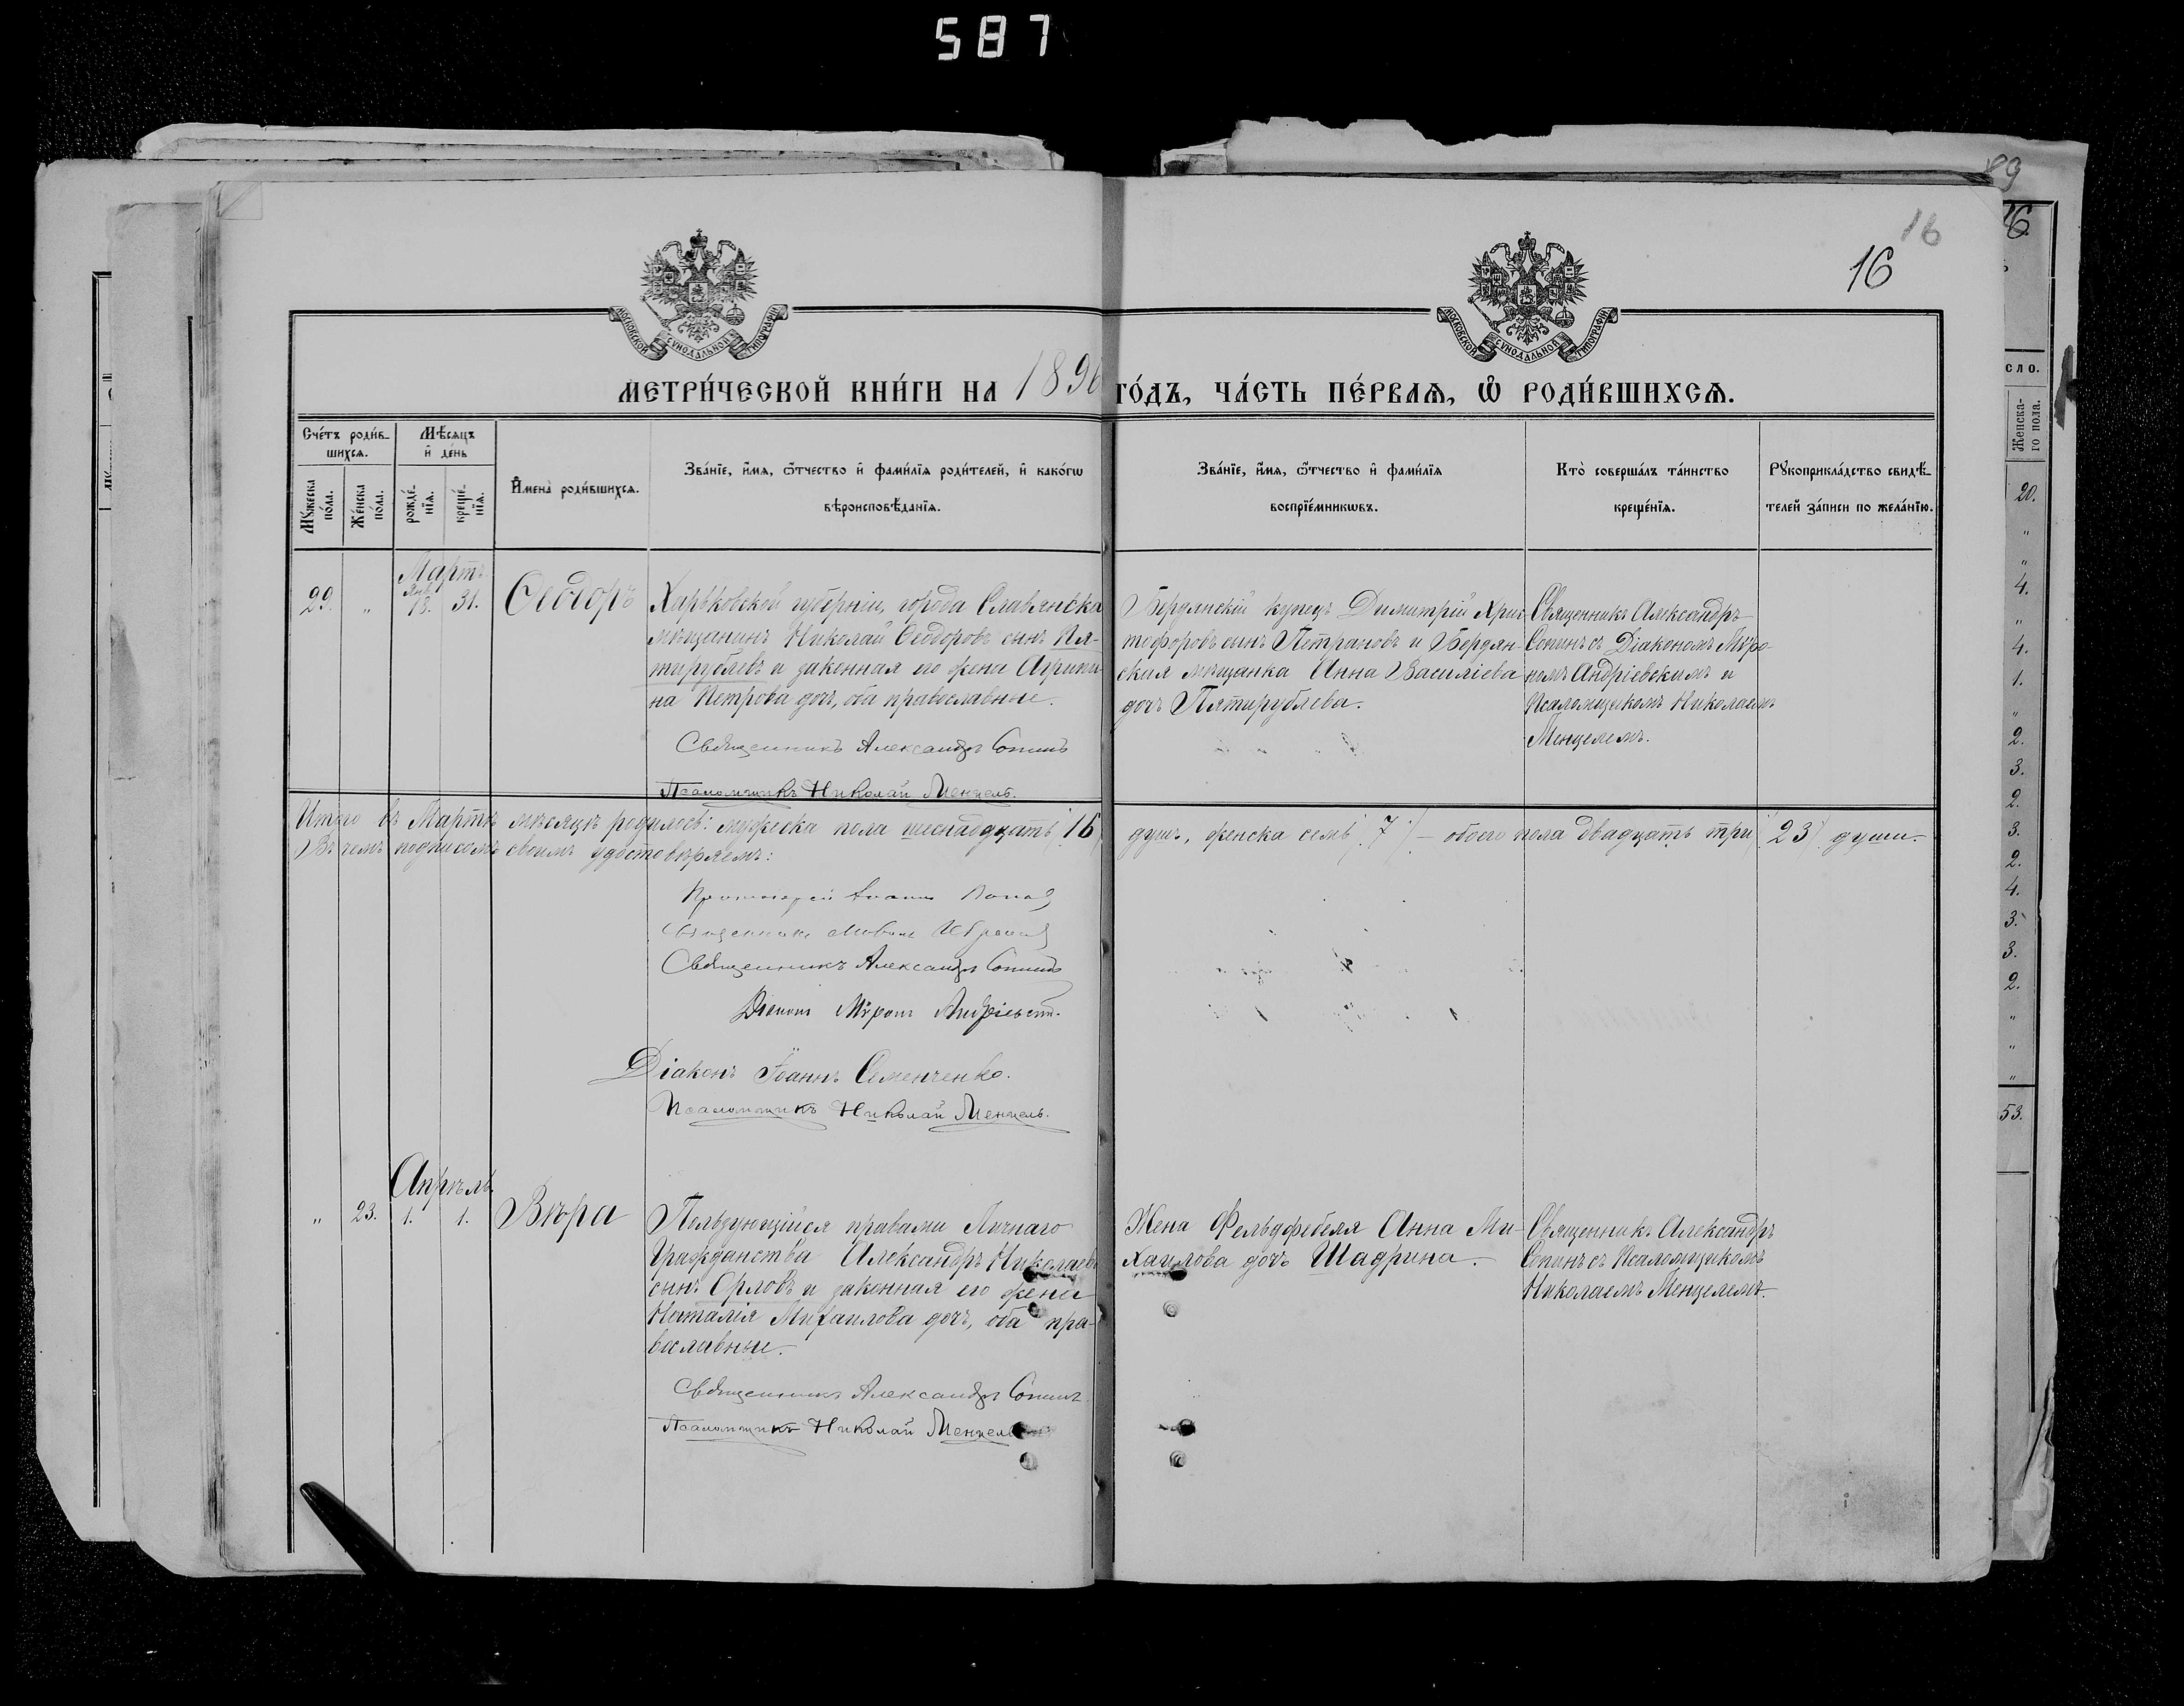 587
89
16
16
16
МОСКОВСКОЙ СѴНОДАЛЬНОЙ ТИПОГРАФІИ
МОСКОВСКОЙ СѴНОДАЛЬНОЙ ТИПОГРАФІИ
МЕТРИ́ЧЕСКОЙ КНИ́ГИ НА 1896 ГО́ДЪ, ЧА́СТЬ ПЕ́РВАѦ, Ѡ҆ РОДИ́ВШИХСѦ.
Сче́тъ роди́в-
шихсѧ.
Мѣ́сѧцъ
и҆ де́нь
Мꙋ́жеска
по́ла.
Же́нска
по́ла.
рожде́-
нїѧ.
креще́-
нїѧ.
И҆мена̀ роди́вшихсѧ.
Зва́нїе, и҆́мѧ, ѻ҆́тчество и҆ фами́лїѧ роди́телей, и҆ како́гѡ
вѣроисповѣ́данїѧ.
Зва́нїе, и҆́мѧ, ѻ҆́тчество и҆ фами́лїѧ
воспрїе́мникѡвъ.
Кто̀ соверша́лъ та́инство
креще́нїѧ.
Рꙋкоприкла́дство свидѣ́-
телей за́писи по жела́нїю.
Мартъ
29. „ Янв. 18. 31. Ѳеодоръ
Харьковской губерніи, города Славянска
мѣщанинъ Николай Ѳеодоровъ сынъ Пя-
тирублевъ и законная его жена Агрипи-
на Петрова дочь, оба православные.
Священникъ Александръ Сопинъ
Псаломщикъ Николай Менцель.
Бердянскій купецъ Димитрій Хрис-
тофоровъ сынъ Петрановъ и Бердян-
ская мѣщанка Анна Василіева
дочь Пятирублева.
Священникъ Александръ
Сопинъ съ Діакономъ Мѵро-
номъ Андріевскимъ и
Псаломщикомъ Николаемъ
Менцелемъ.
Итого въ Мартѣ мѣсяцѣ родилось: мужеска пола шеснадцать /16/ душъ, женска семь /7/ – обоего пола двадцать три /23/ души.
Въ чемъ подписомъ своимъ удостовѣряемъ:
Протоіерей
Священникъ
Священникъ Александръ Сопинъ
Діаконъ Мѵронъ Андріевскій.
Діаконъ Іоаннъ Семенченко.
Псаломщикъ Николай Менцель.
Апрѣль
„ 23. 1. 1. Вѣра
Пользующійся правами Личнаго
Гражданства Александръ Николаевъ
сынъ Орловъ и законная его жена
Наталія Михаилова дочь, оба пра-
вославные.
Священникъ Александръ Сопинъ
Псаломщикъ Николай Менцель
Жена Фельдфебеля Анна Ми-
хаилова дочь Шадрина.
Священникъ Александръ
Сопинъ съ Псаломщикомъ
Николаемъ Менцелемъ.
сло.
Женска-
го пола.
20.
„
„
4.
„
4.
1.
„
2.
3.
2.
3.
2.
4.
3.
3.
2.
„
„
„
53.